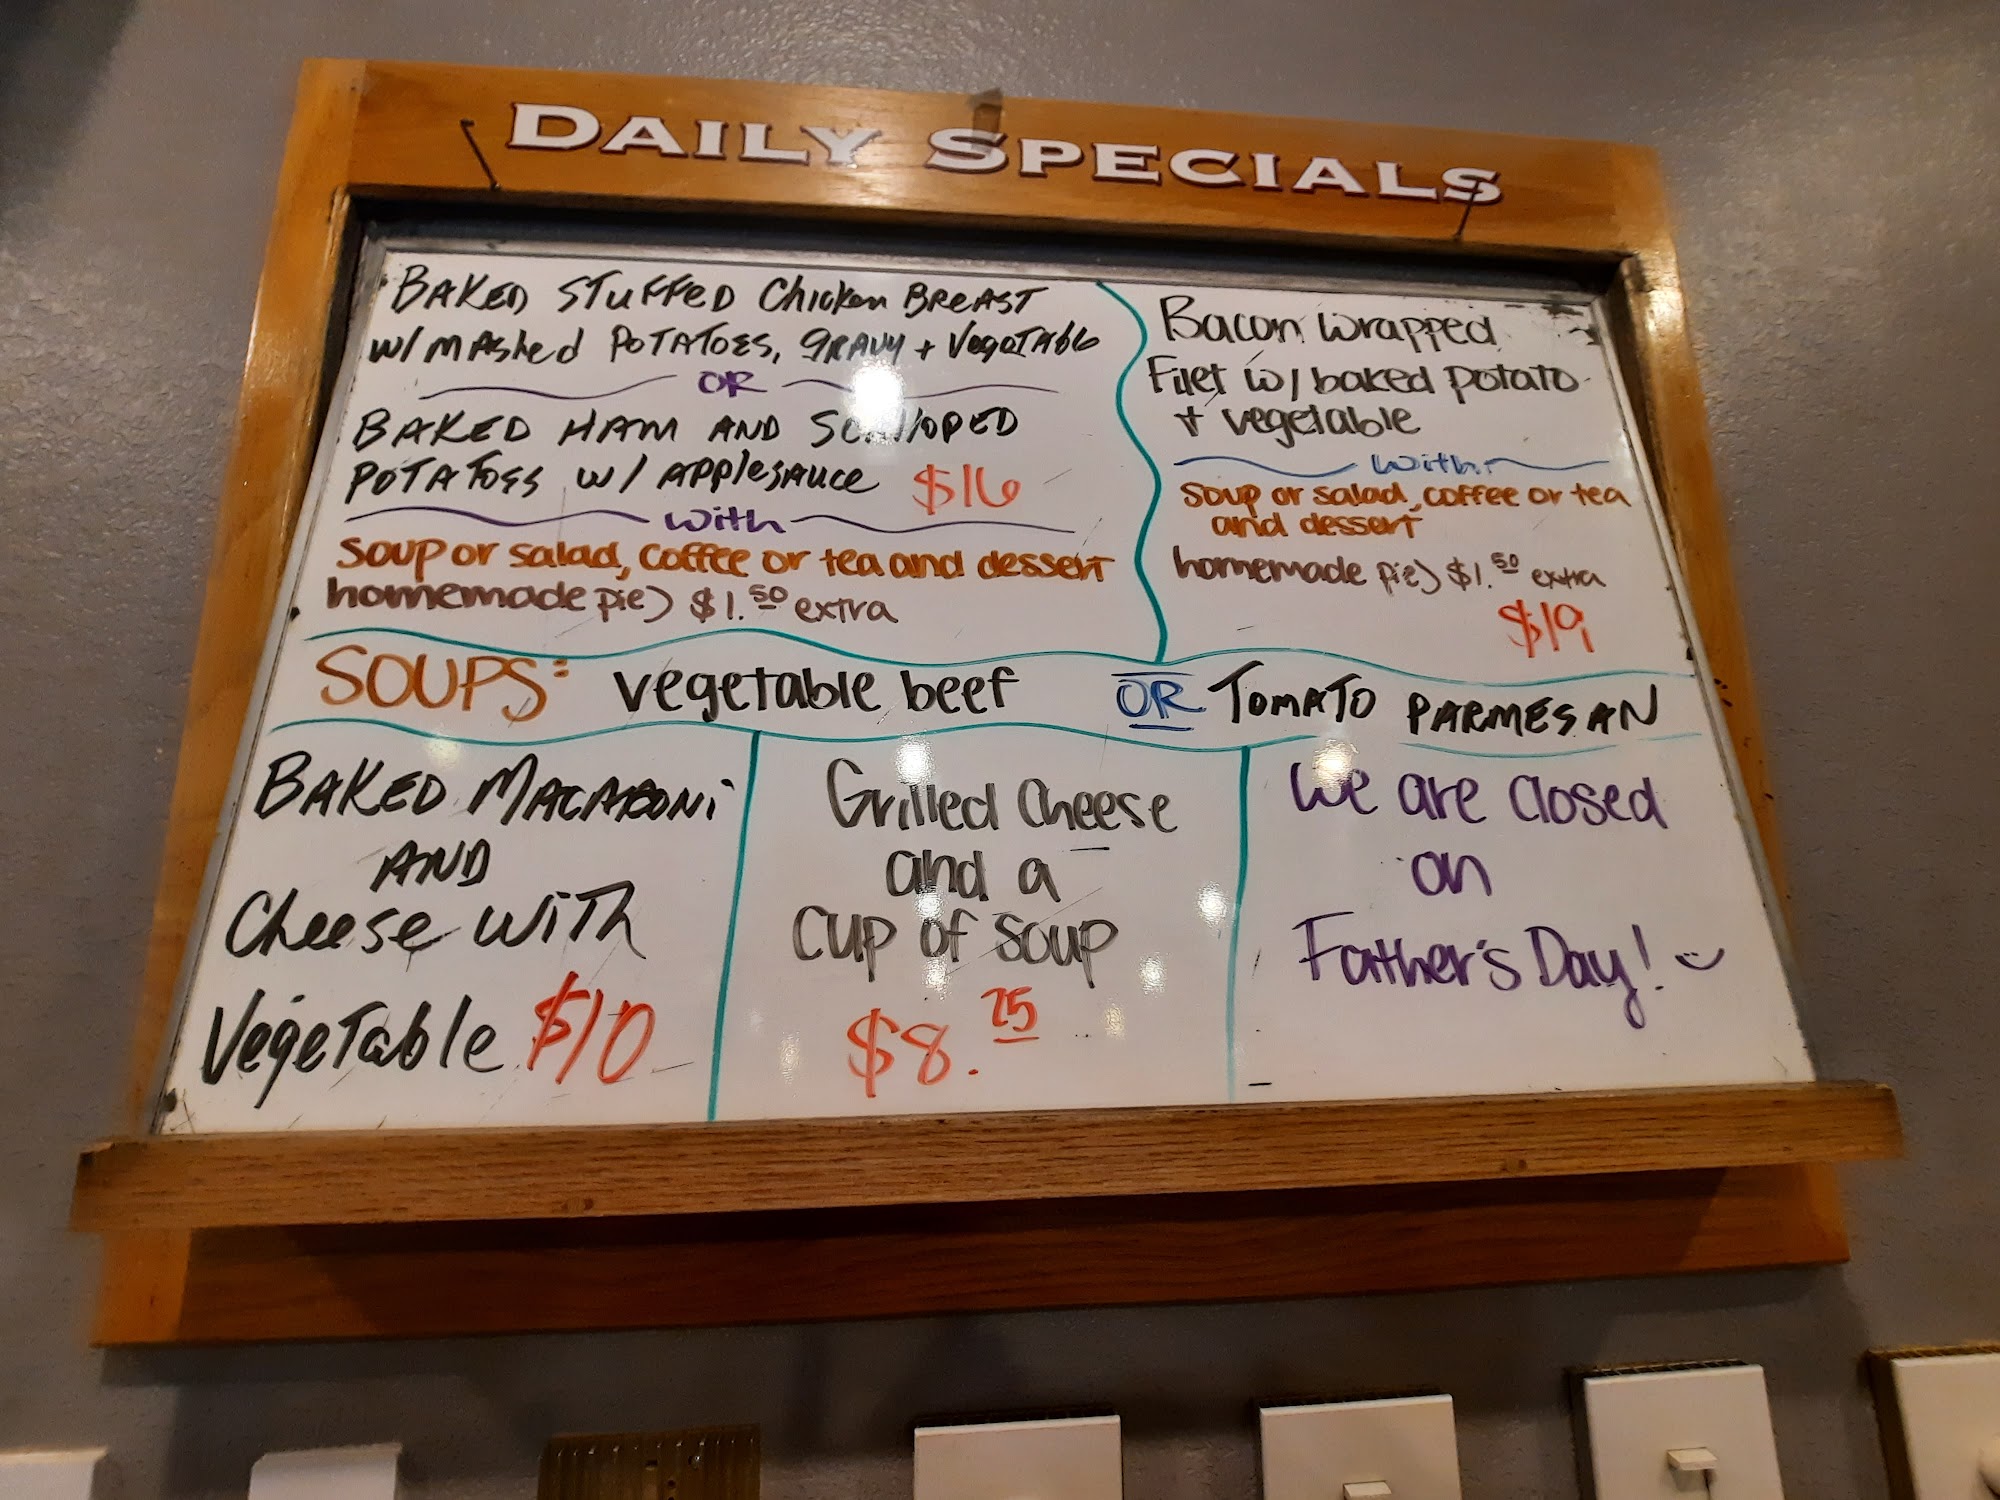 DAILY SPECIALS
BAKED STUFFED Chicken BREAST
W/ MASHED POTATOES, GRAVY + VegeTABle
OR
BAKED HAM AND SCALLOPED
POTATOES W/ APPLESAUCE $16
with
soup or salad, coffee or tea and dessert
homemade pie) $1.50 extra
Bacon Wrapped
Filet w/ baked potato
+ vegetable
with:
soup or salad, coffee or tea
and dessert
homemade pie) $1.50 extra
$19
SOUPS: vegetable beef OR TOMATO PARMESAN
BAKED MACARONi
AND
Cheese WiTh
VegeTable $10
Grilled Cheese
and a
cup of soup
$8.75
We are closed
on
Father's Day!